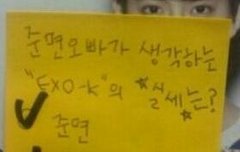 준면오빠가 생각하는
"EXO-K"의 ☆실세는?☆
준면